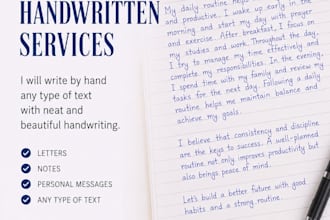 HANDWRITTEN
SERVICES
I will write by hand
any type of text
with neat and
beautiful handwriting.
LETTERS
NOTES
PERSONAL MESSAGES
ANY TYPE OF TEXT
My daily routine helps
and productive. I wake up early in the
morning and start my day with prayer
and exercise. After breakfast, I focus on
my studies and work. Throughout the day,
I try to manage my time effectively and
complete my responsibilities. In the evening,
I spend time with my family and review my
tasks for the next day. Following a daily
routine helps me maintain balance and
achieve my goals.
I believe that consistency and discipline
are the keys to success. A well-planned
routine not only improves productivity but
also brings peace of mind.
Let's build a better future with good
habits and a strong routine.